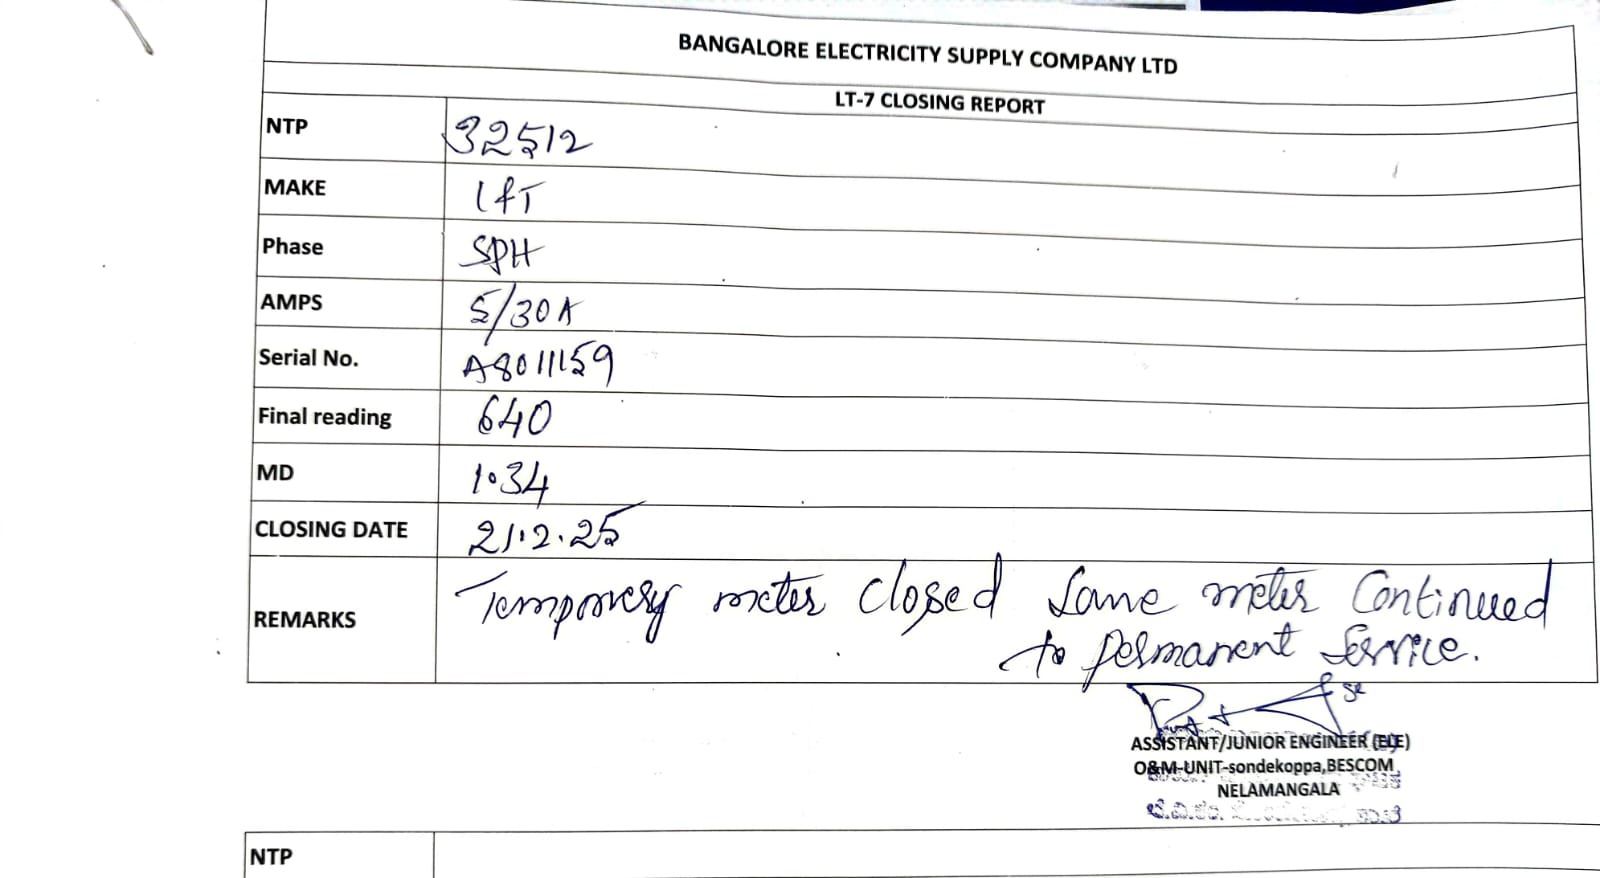 BANGALORE ELECTRICITY SUPPLY COMPANY LTD
LT-7 CLOSING REPORT
NTP 32512
MAKE L&T
Phase SPH
AMPS 5/30A
Serial No. A8011159
Final reading 640
MD 1.34
CLOSING DATE 21.2.25
REMARKS Temporary meter closed Same meter Continued
to permanent Service.
ASSISTANT/JUNIOR ENGINEER (ELE)
O&M-UNIT-sondekoppa,BESCOM
NELAMANGALA
NTP